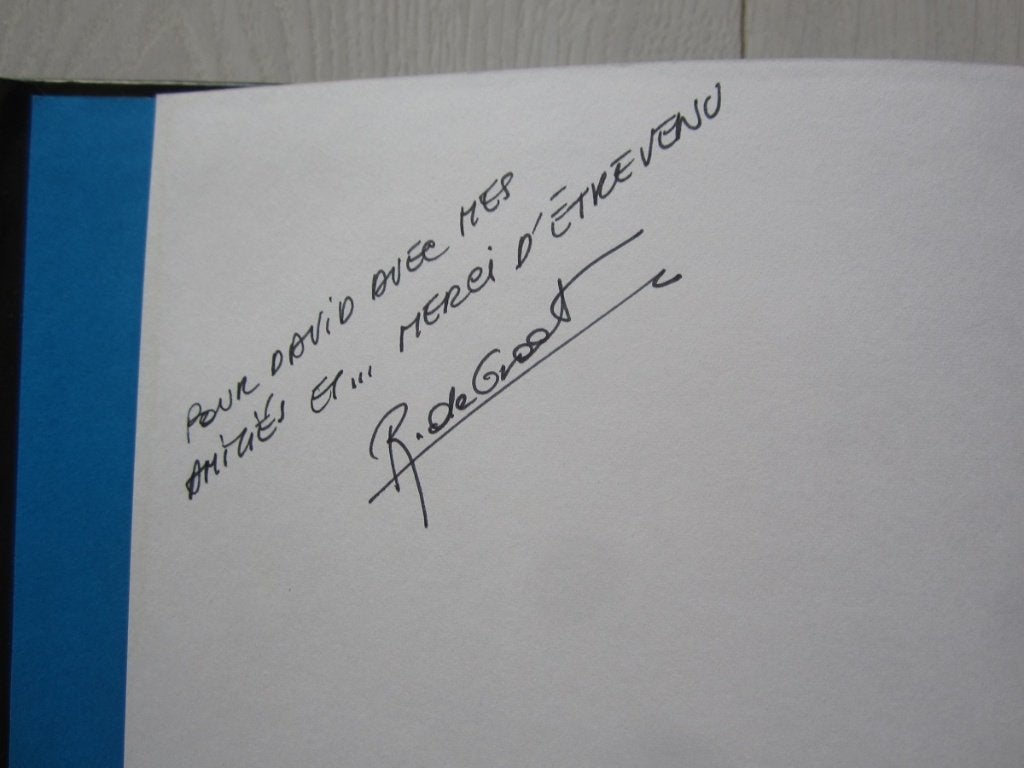 POUR DAVID AVEC MES
AMITIÉS ET... MERCI D'ÊTRE VENU
R. de Groot